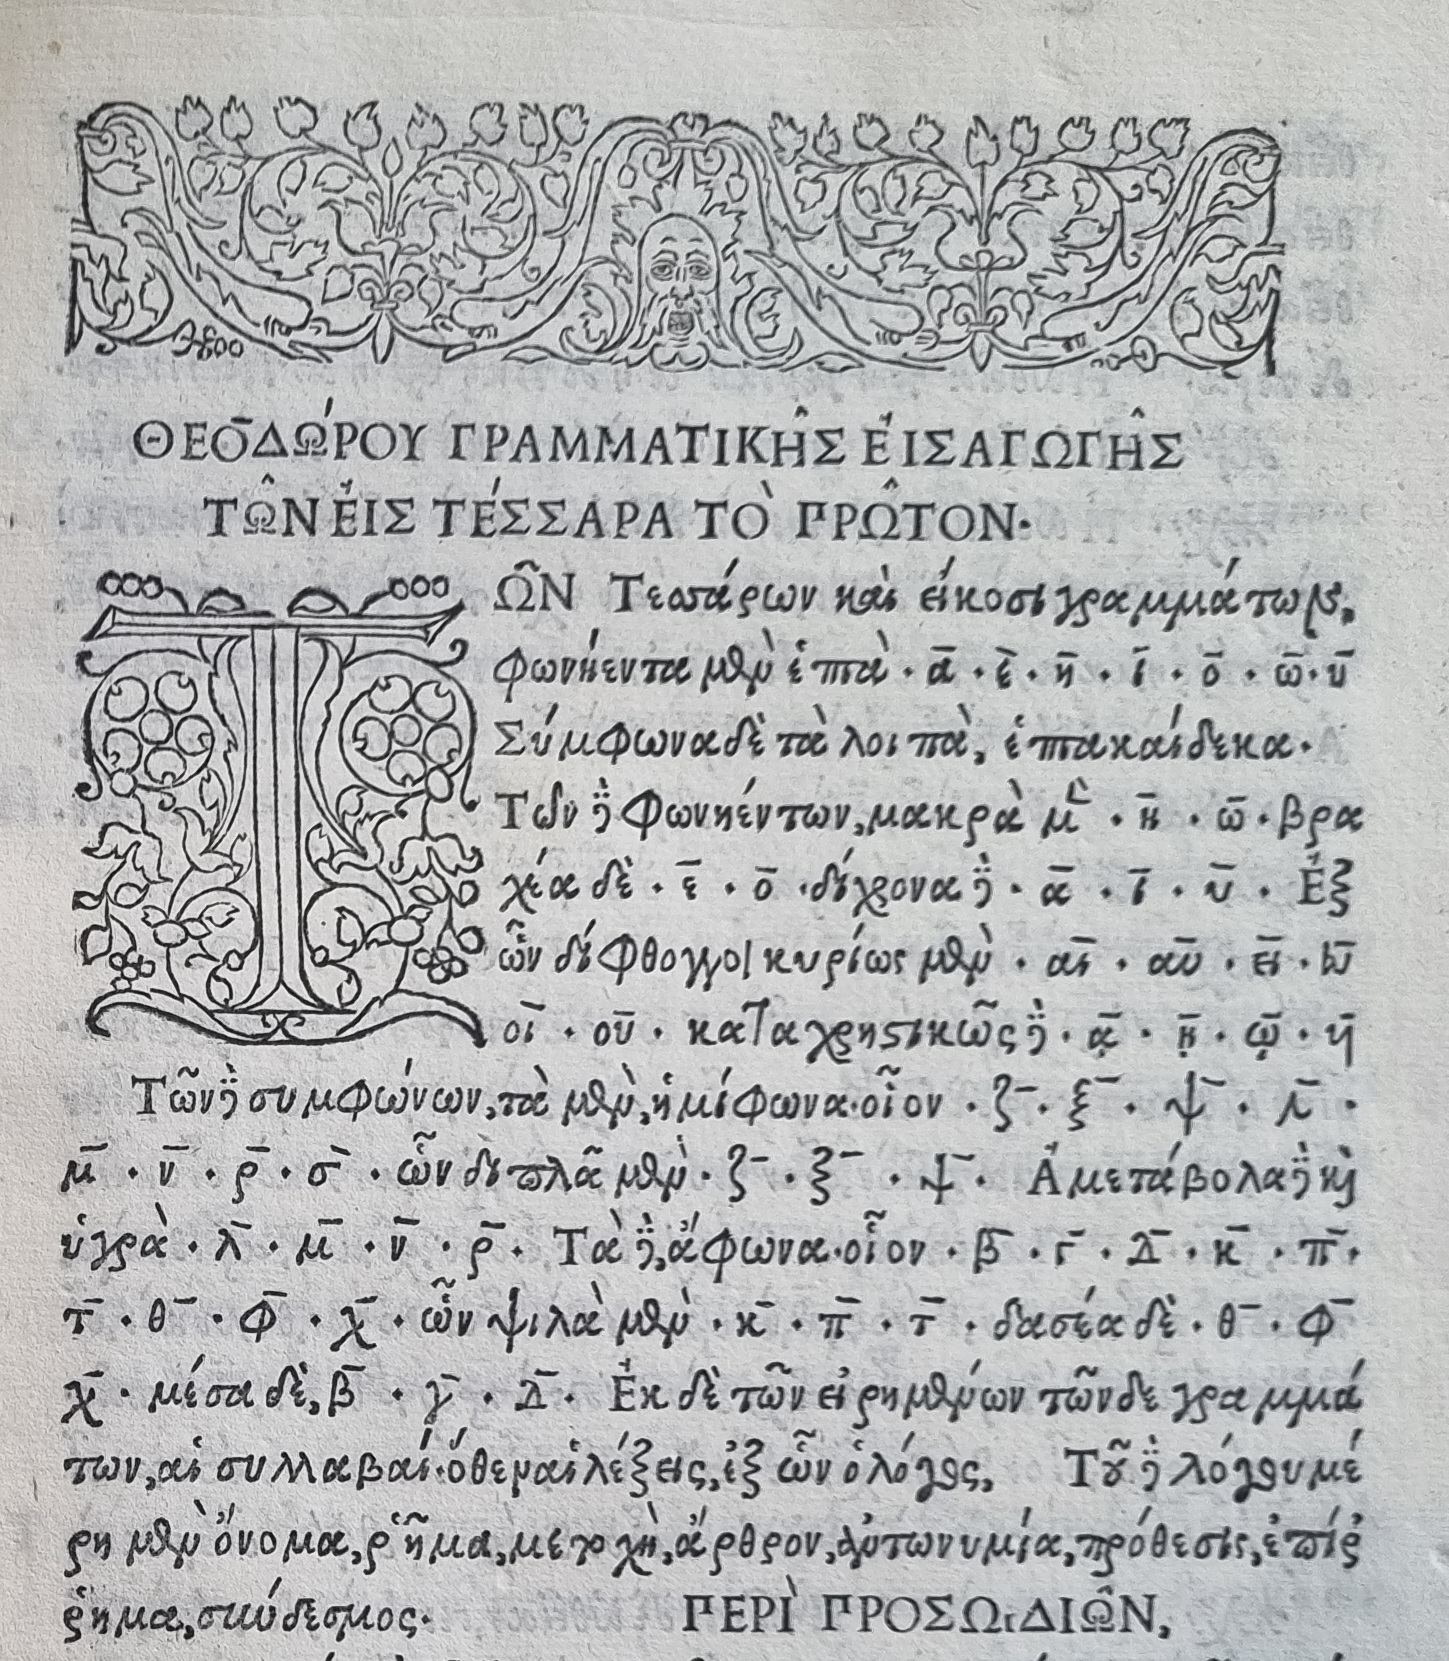 ΘΕΟΔΏΡΟΥ ΓΡΑΜΜΑΤΙΚΗ͂Σ ἘΙΣΑΓΩΓΗ͂Σ
ΤΩ͂Ν ἘΙΣ ΤΈΣΣΑΡΑ ΤῸ ΠΡΩ͂ΤΟΝ·
ΤΩ͂Ν Τεσσάρων καὶ εἴκοσι γραμμάτων,
φωνήεντα μὲν ἑπτὰ · α̅ · ε̅ · η̅ · ι̅ · ο̅ · ω̅ · υ̅
Σύμφωνα δὲ τὰ λοιπὰ, ἑπτακαίδεκα·
Τῶν δὲ φωνηέντων, μακρὰ μὲν · η̅ · ω̅ · βρα
χέα δὲ · ε̅ · ο̅ · δίχρονα δὲ · α̅ · ι̅ · υ̅ · Ἐξ
ὧν δίφθογγοι κυρίως μὲν · αι̅ · αυ̅ · ει̅ · ευ̅
οι̅ · ου̅ · καταχρηστικῶς δὲ · ᾳ̅ · ῃ̅ · ῳ̅ · υι̅
Τῶν δὲ συμφώνων, τὰ μὲν, ἡμίφωνα· οἷον · ζ̅ · ξ̅ · ψ̅ · λ̅ ·
μ̅ · ν̅ · ρ̅ · σ̅ · ὧν διπλᾶ μὲν · ζ̅ · ξ̅ · ψ̅ · Ἀμετάβολα δὲ καὶ
ὑγρὰ · λ̅ · μ̅ · ν̅ · ρ̅ · Τὰ δὲ, ἄφωνα· οἷον · β̅ · γ̅ · δ̅ · κ̅ · π̅ ·
τ̅ · θ̅ · φ̅ · χ̅ · ὧν ψιλὰ μὲν · κ̅ · π̅ · τ̅ · δασέα δὲ · θ̅ · φ̅
χ̅ · μέσα δὲ, β̅ · γ̅ · δ̅ · Ἐκ δὲ τῶν εἰρημένων τῶνδε γραμμά
των, αἱ συλλαβαί· ὅθεν αἱ λέξεις, ἐξ ὧν ὁ λόγος, Τοῦ δὲ λόγου μέ
ρη μὲν ὄνομα, ῥῆμα, μετοχὴ, ἄρθρον, ἀντωνυμία, πρόθεσις, ἐπίρ
ῥημα, σύνδεσμος· ΠΕΡῚ ΠΡΟΣΩιΔΙΩ͂Ν,